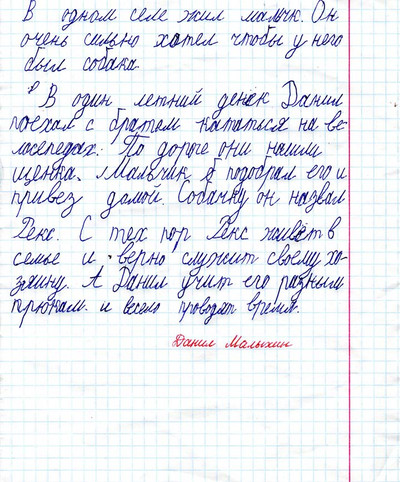 В одном селе жил мальчк. Он
очень сильно хотел чтобы у него
был собака.
В один летний денёк Данил
поехал с братом кататься на ве-
лосепедах. По дороге они нашли
щенка. Мальчик подобрал его и
привез домой. Собачку он назвал
Рекс. С тех пор Рекс живёт в
семье и верно служит своему хо-
зяину. А Данил учит его разным
трюкам. и весело проводят время.
Данил Малыхин